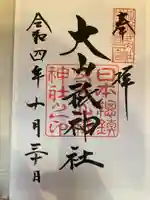 奉拝
日本総鎮守
大山祇神社
神社之印
令和四年十月三十日